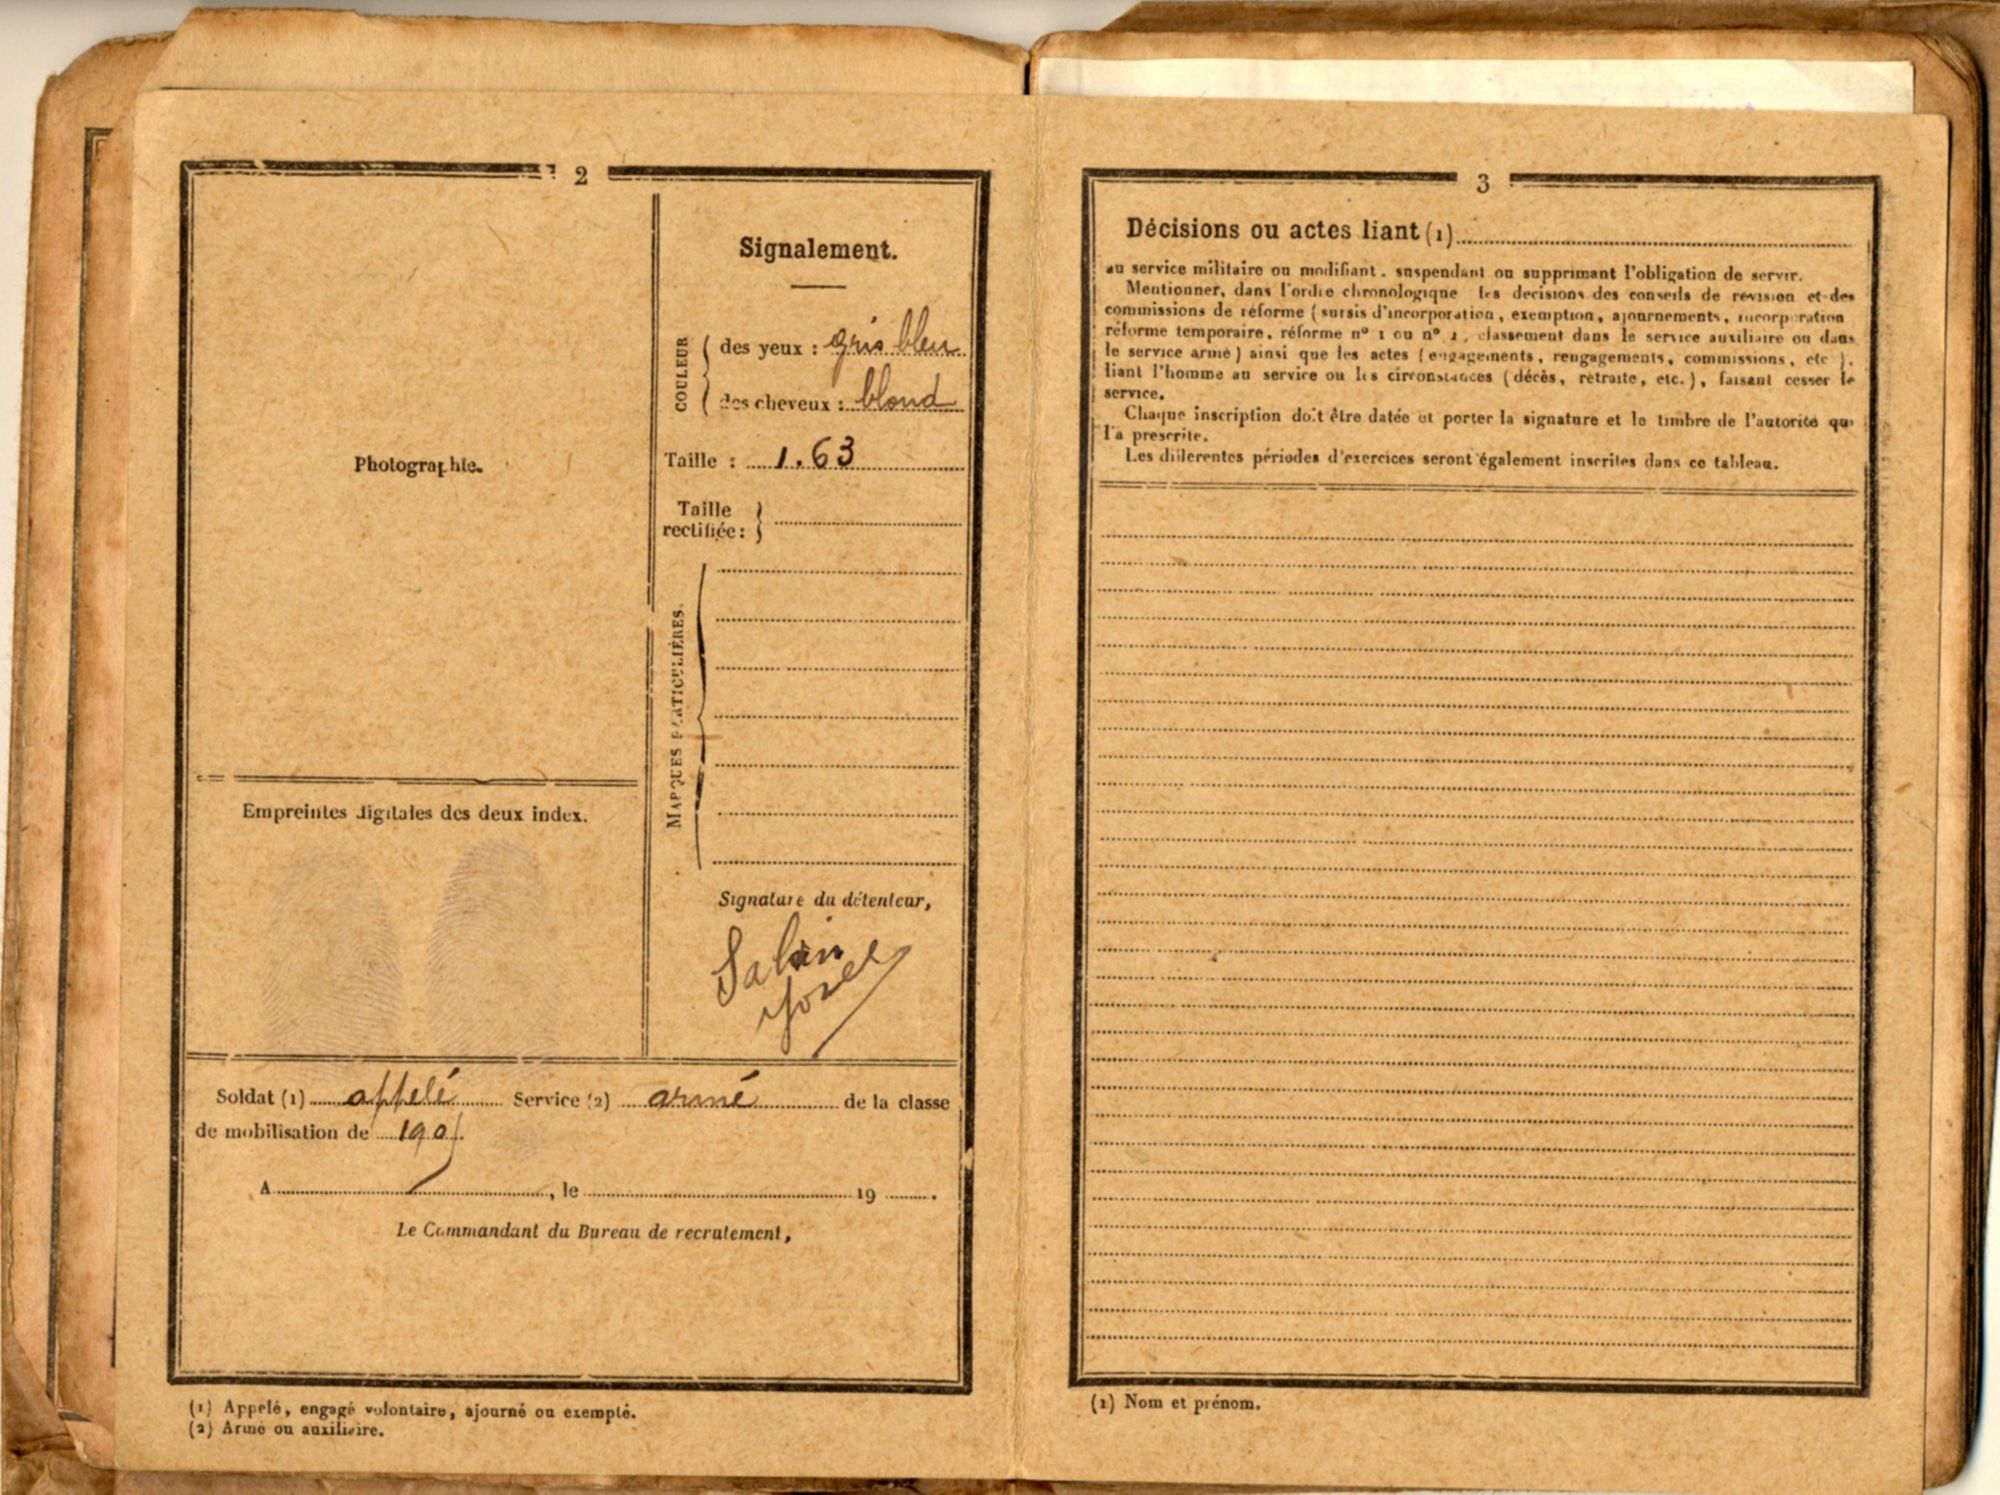 2
Photographie.
Empreintes digitales des deux index.
Signalement.
COULEUR
des yeux : gris bleu
des cheveux : blond
Taille : 1.63
Taille
rectifiée :
MARQUES PARTICULIÈRES.
Signature du détenteur,
Soldat (1) appelé Service (2) armé de la classe
de mobilisation de
A , le 19 .
Le Commandant du Bureau de recrutement,
(1) Appelé, engagé volontaire, ajourné ou exempté.
(2) Armé ou auxiliaire.
3
Décisions ou actes liant (1)
au service militaire ou modifiant, suspendant ou supprimant l'obligation de servir.
Mentionner, dans l'ordre chronologique les decisions des conseils de revision et des
commissions de réforme (sursis d'incorporation, exemption, ajournements, incorporation
réforme temporaire, réforme nº 1 ou nº 2, classement dans le service auxiliaire ou dans
le service armé) ainsi que les actes (engagements, rengagements, commissions, etc ),
liant l'homme au service ou les circonstances (décès, retraite, etc.), faisant cesser le
service.
Chaque inscription doit être datée et porter la signature et le timbre de l'autorité qui
l'a prescrite.
Les différentes périodes d'exercices seront également inscrites dans ce tableau.
(1) Nom et prénom.